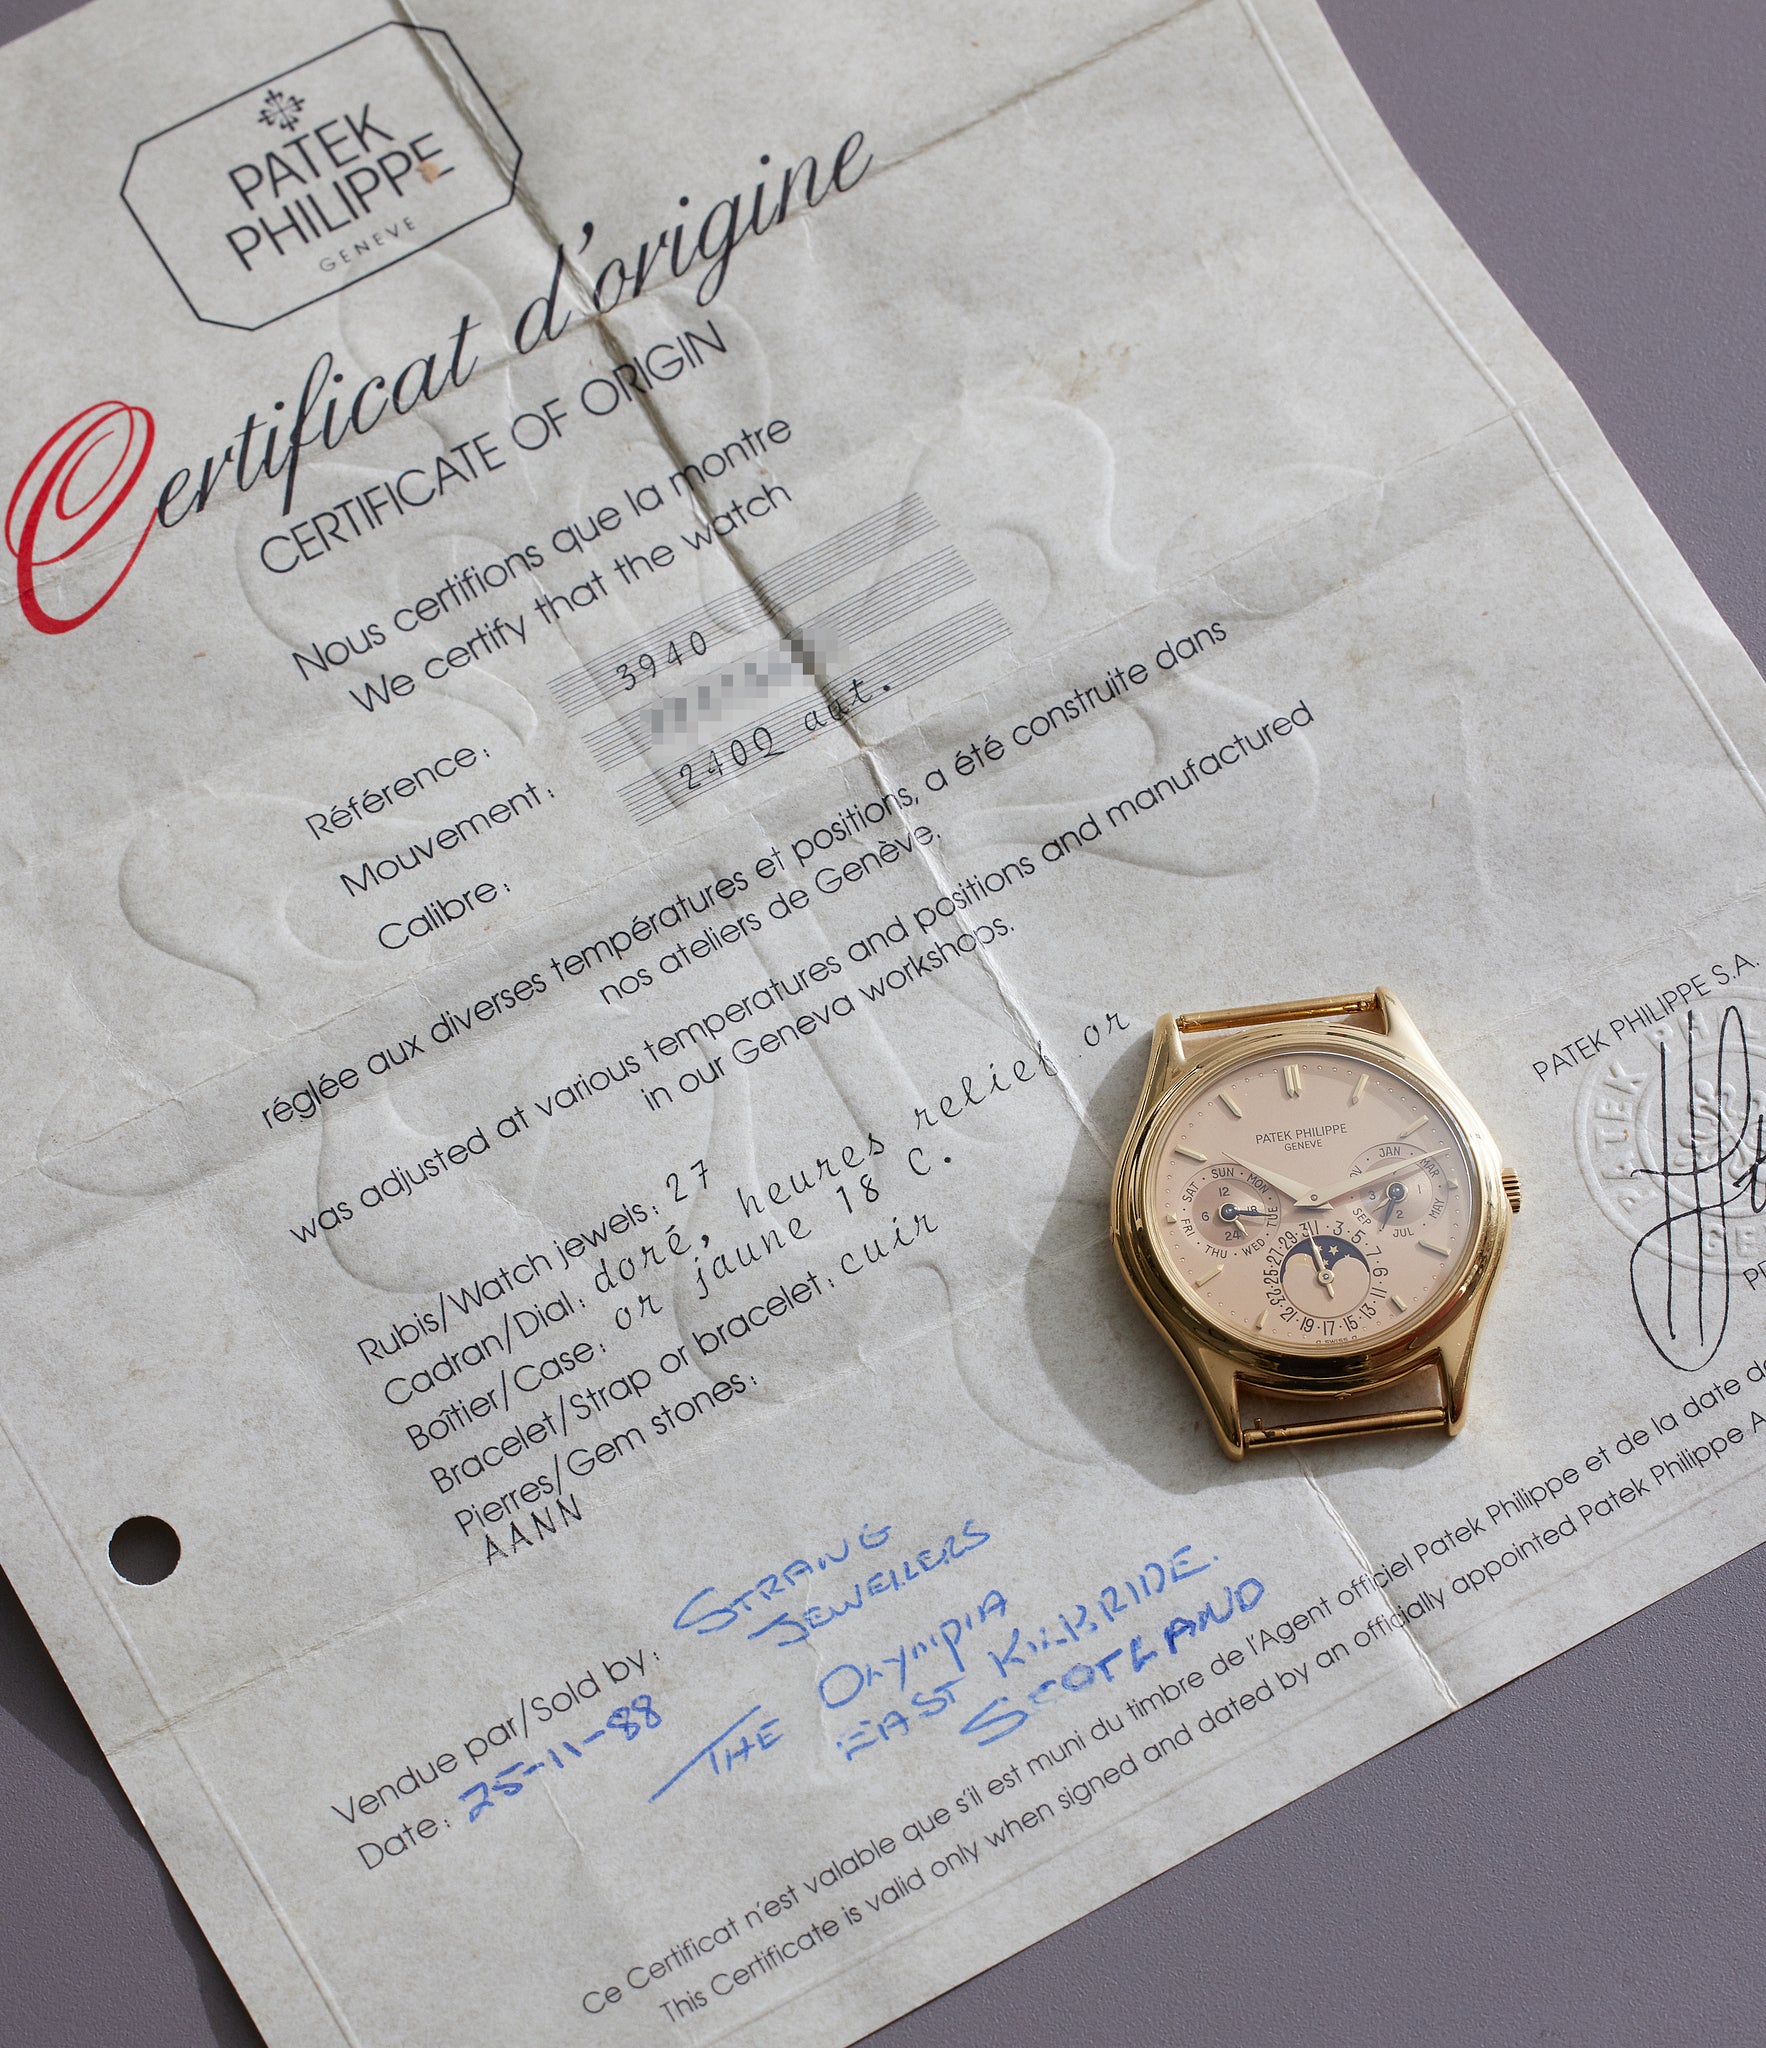 PATEK
PHILIPPE
GENEVE
Certificat d'origine
CERTIFICATE OF ORIGIN
Nous certifions que la montre
We certify that the watch
Référence: 3940
Mouvement:
Calibre: 240Q aut.
réglée aux diverses températures et positions, a été construite dans
nos ateliers de Genève.
was adjusted at various temperatures and positions and manufactured
in our Geneva workshops.
Rubis/Watch jewels: 27
Cadran/Dial: doré, heures relief or
Boîtier/Case: or jaune 18 C.
Bracelet/Strap or bracelet: cuir
Pierres/Gem stones:
AANN
PATEK PHILIPPE S.A.
Vendue par/Sold by: STRANG
JEWELLERS
Date: 25-11-88
THE OLYMPIA
EAST KILBRIDE.
SCOTLAND
Ce Certificat n'est valable que s'il est muni du timbre de l'Agent officiel Patek Philippe et de la date
This Certificate is valid only when signed and dated by an officially appointed Patek Philippe
PATEK PHILIPPE
GENEVE
SAT SUN MON TUE WED THU FRI
6 12 18 24
JAN MAR MAY JUL SEP
1 2 3
31 1 3 5 7 9 11 13 15 17 19 21 23 25 27 29
SWISS